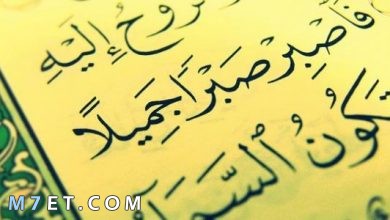 وَٱلرُّوحُ إِلَيْهِ
فَٱصْبِرْ صَبْرًا جَمِيلًا
تَكُونُ ٱلسَّمَآءُ
M7ET.COM